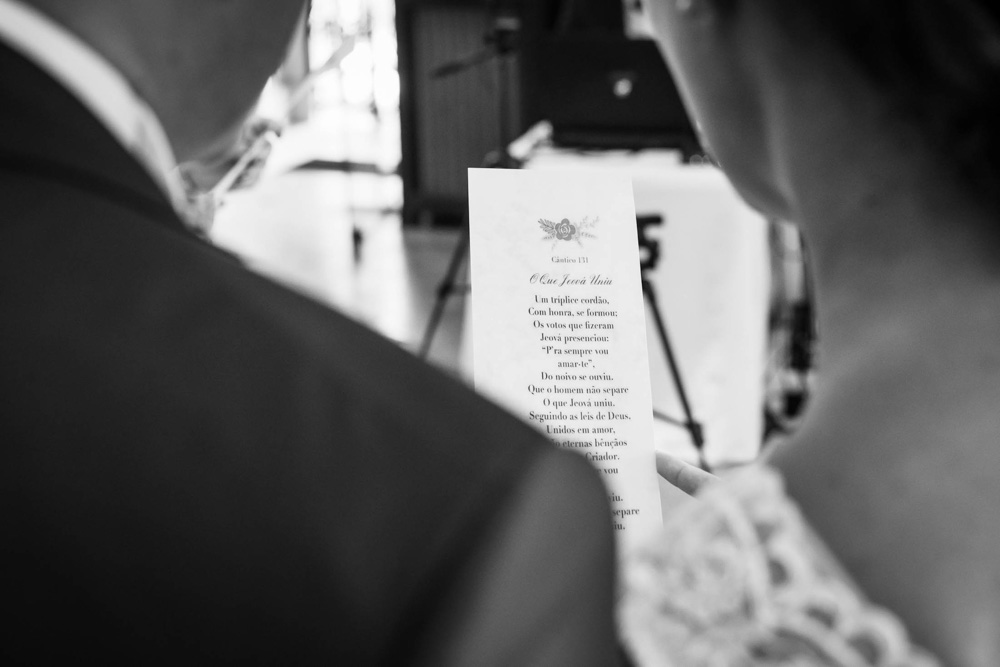 Cântico 131
O Que Jeová Uniu
Um tríplice cordão,
Com honra, se formou;
Os votos que fizeram
Jeová presenciou:
“P’ra sempre vou
amar-te”,
Do noivo se ouviu.
Que o homem não separe
O que Jeová uniu.
Seguindo as leis de Deus,
Unidos em amor,
eternas bênçãos
Criador.
vou
separe